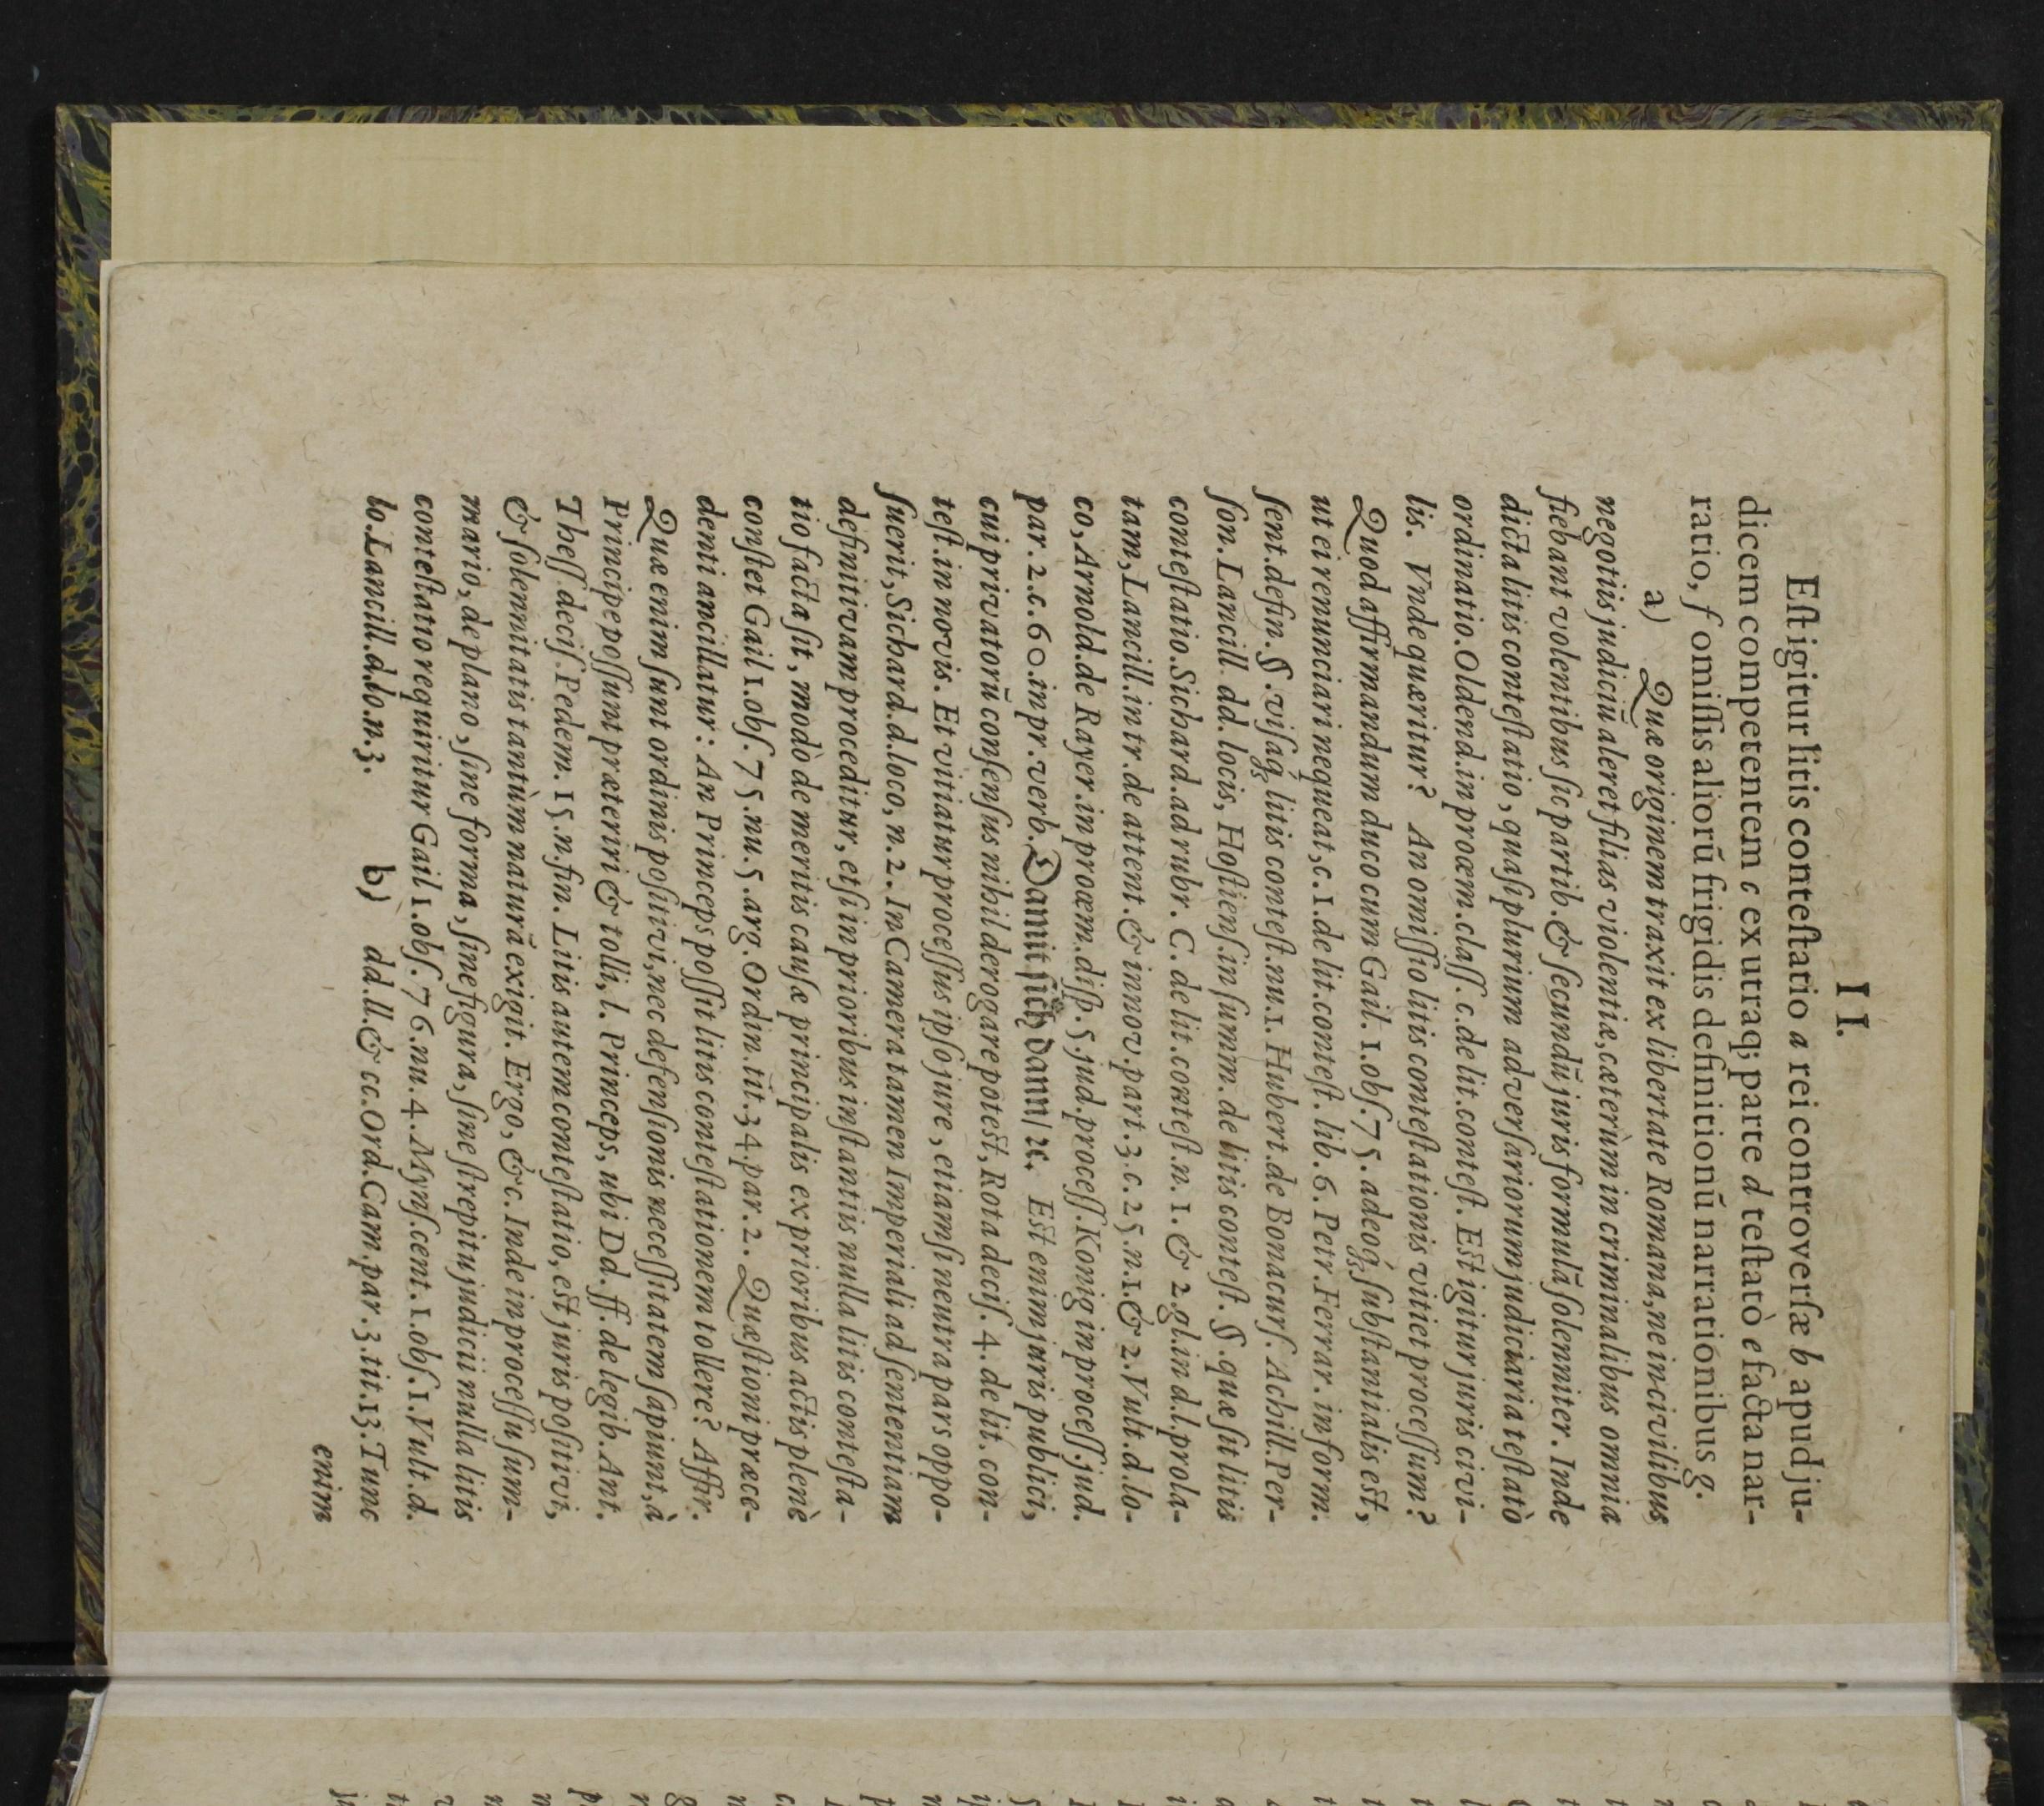 I I.
Eſt igitur litis conteſtatio a rei controverſæ b apud ju-
dicem competentem c ex utraq; parte d teſtatò e facta nar-
ratio, f omiſſis aliorũ frigidis definitionũ narrationibus g.
a) Quæ originem traxit ex libertate Romana, ne in civilibus
negotiis judiciũ aleret filias violentiæ, cæterùm in criminalibus omnia
fiebant volentibus ſic partib. & ſecundũ juris formulã ſolenniter. Inde
dicta litis conteſtatio, quaſi plurium adverſariorum judiciaria teſtatò
ordinatio. Oldend. in proœm. claſſ. c. de lit. conteſt. Eſt igitur juris civi-
lis. Vnde quæritur? An omiſſio litis conteſtationis vitiet proceſſum?
Quod affirmandum duco cum Gail. 1. obſ. 75. adeoq́; ſubſtantialis eſt,
ut ei renunciari nequeat, c. 1. de lit. conteſt. lib. 6. Petr. Ferrar. in form.
ſent. defin. §. viſaq́; litis conteſt. nu. 1. Hubert. de Bonacurſ. Achill. Per-
ſon. Lancill. dd. locis, Hoſtienſ. in ſumm. de litis conteſt. §. quæ ſit litis
conteſtatio. Sichard. ad rubr. C. de lit. conteſt. n. 1. & 2. gl. in d. l. prola-
tam, Lancill. in tr. de attent. & innov. part. 3. c. 25. n. 1. & 2. Vult. d. lo-
co, Arnold. de Rayer. in proœm. diſp. 5. jud. proceſſ. Konig in proceſſ. jud.
par. 2. c. 60. in pr. verb. Damit ſich dann/ ꝛc. Eſt enim juris publici,
cui privatorũ conſenſus nihil derogare poteſt, Rota deciſ. 4. de lit. con-
teſt. in novis. Et vitiatur proceſſus ipſo jure, etiamſi neutra pars oppo-
ſuerit, Sichard. d. loco, n. 2. In Camera tamen Imperiali ad ſententiam
definitivam proceditur, etſi in prioribus inſtantiis nulla litis conteſta-
tio facta ſit, modò de meritis cauſæ principalis ex prioribus actis plenè
conſtet Gail 1. obſ. 75. nu. 5. arg. Ordin. tit. 34. par. 2. Quæſtioni præce-
denti ancillatur: An Princeps poſſit litis conteſtationem tollere? Affir.
Quæ enim ſunt ordinis poſitivi, nec defenſionis neceſſitatem ſapiunt, à
Principe poſſunt præteriri & tolli, l. Princeps, ubi Dd. ff. de legib. Ant.
Theſſ. deciſ. Pedem. 15. n. fin. Litis autem conteſtatio, eſt juris poſitivi,
& ſolennitatis tantùm naturã exigit. Ergo, &c. Inde in proceſſu ſum-
mario, de plano, ſine forma, ſine figura, ſine ſtrepitu judicii nulla litis
conteſtatio requiritur Gail 1. obſ. 76. nu. 4. Mynſ. cent. 1. obſ. 1. Vult. d.
lo. Lancill. d. lo. n. 3. b) dd. ll. & cc. Ord. Cam. par. 3. tit. 13. Tunc
enim